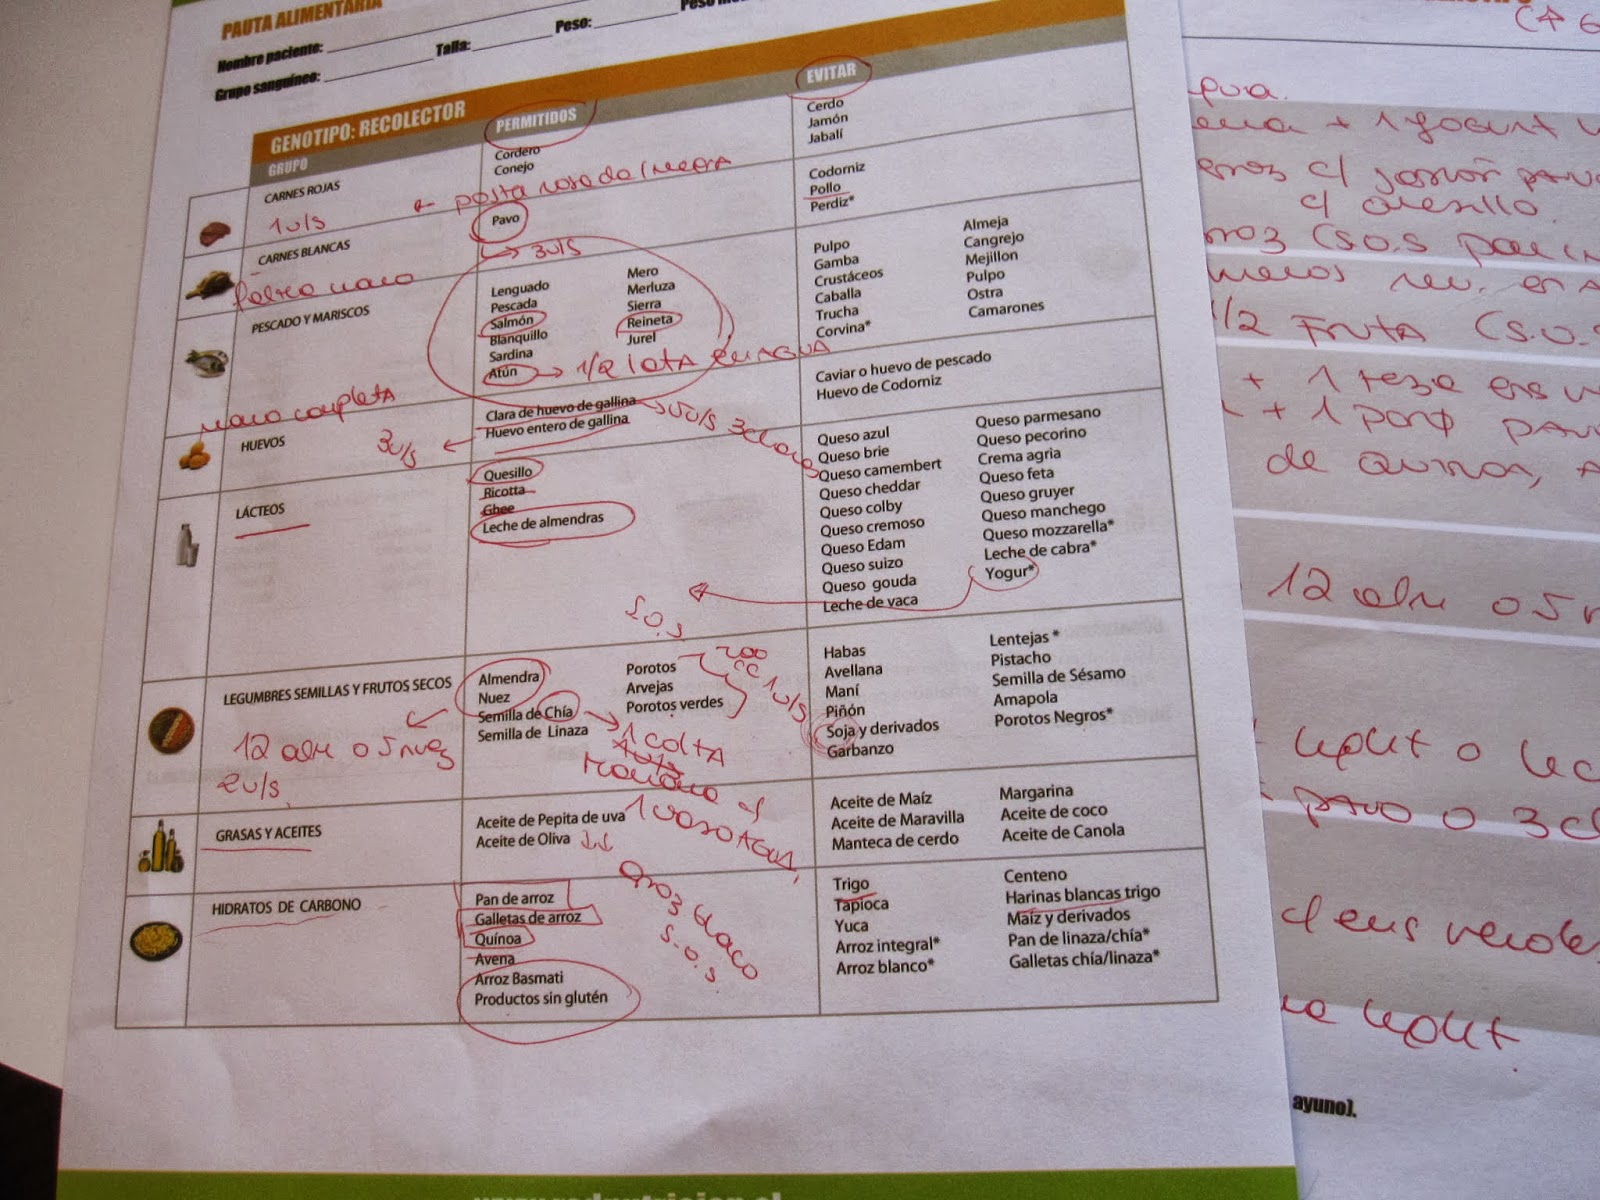 PAUTA ALIMENTARIA
Nombre paciente:
Talla:
Peso:
Grupo sanguíneo:
GENOTIPO: RECOLECTOR
GRUPO
PERMITIDOS
EVITAR
CARNES ROJAS
1 v/s
Cordero
Conejo
← posta rosada/negra
Cerdo
Jamón
Jabalí
CARNES BLANCAS
Pavo
→ 3v/s
Codorniz
Pollo
Perdiz*
PESCADO Y MARISCOS
Lenguado
Pescada
Salmón
Blanquillo
Sardina
Atún → 1/2 lata en AGUA
Mero
Merluza
Sierra
Reineta
Jurel
Pulpo
Gamba
Crustáceos
Caballa
Trucha
Corvina*
Almeja
Cangrejo
Mejillon
Pulpo
Ostra
Camarones
mano completa
HUEVOS
3v/s
Clara de huevo de gallina
Huevo entero de gallina
Caviar o huevo de pescado
Huevo de Codorniz
LÁCTEOS
Quesillo
Ricotta
Ghee
Leche de almendras
Queso azul
Queso brie
Queso camembert
Queso cheddar
Queso colby
Queso cremoso
Queso Edam
Queso suizo
Queso gouda
Leche de vaca
Queso parmesano
Queso pecorino
Crema agria
Queso feta
Queso gruyer
Queso manchego
Queso mozzarella*
Leche de cabra*
Yogur*
S.O.S
LEGUMBRES SEMILLAS Y FRUTOS SECOS
12 alm o 5 nuez
2v/s
Almendra
Nuez
Semilla de Chía
Semilla de Linaza
Porotos
Arvejas
Porotos verdes
200
CC 1v/s
→ 1 cdta
Habas
Avellana
Maní
Piñón
Soja y derivados
Garbanzo
Lentejas *
Pistacho
Semilla de Sésamo
Amapola
Porotos Negros*
GRASAS Y ACEITES
Aceite de Pepita de uva
Aceite de Oliva ↓↓
1 vaso AGUA
Aceite de Maíz
Aceite de Maravilla
Manteca de cerdo
Margarina
Aceite de coco
Aceite de Canola
HIDRATOS DE CARBONO
Pan de arroz
Galletas de arroz
Quínoa
Avena
Arroz Basmati
Productos sin glutén
arroz blanco
S.O.S
Trigo
Tapioca
Yuca
Arroz integral*
Arroz blanco*
Centeno
Harinas blancas trigo
Maíz y derivados
Pan de linaza/chía*
Galletas chía/linaza*
+ 1 yogurt
c/ jamón pavo
c/ quesillo.
1/2 FRUTA (S.O.S
+ 1 taza ens
+ 1 porc pavo
de quinoa,
12 alm o 5
pavo o 3
ens verde
ayuno).